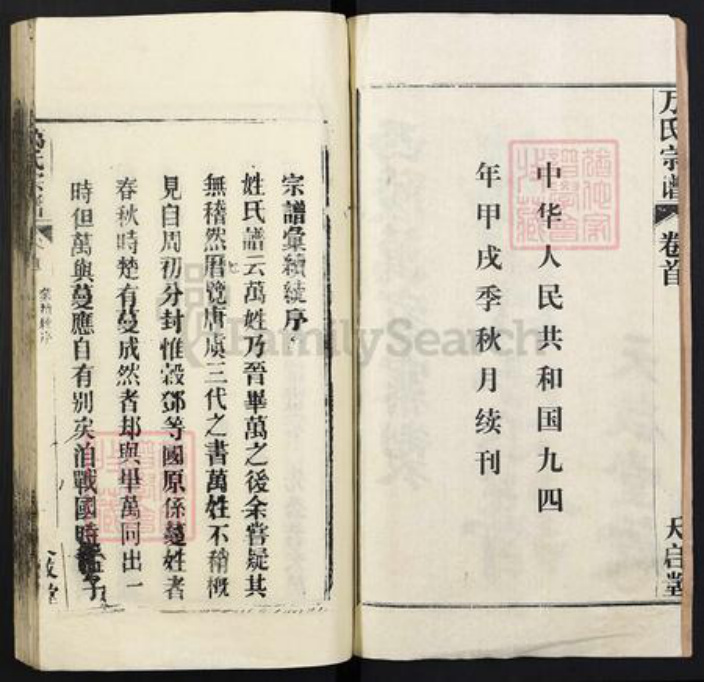 万氏宗谱
卷首
天启堂
中华人民共和国九四
年甲戌季秋月续刊
宗譜彙續統序
姓氏譜云萬姓乃晉畢萬之後余嘗疑其
無稽然曆覽唐虞三代之書萬姓不稍概
見自周初分封惟穀鄧等國原係蔓姓者
春秋時楚有蔓成然者却與畢萬同出一
時但萬與蔓應自有别矣洎戰國時
FamilySearch